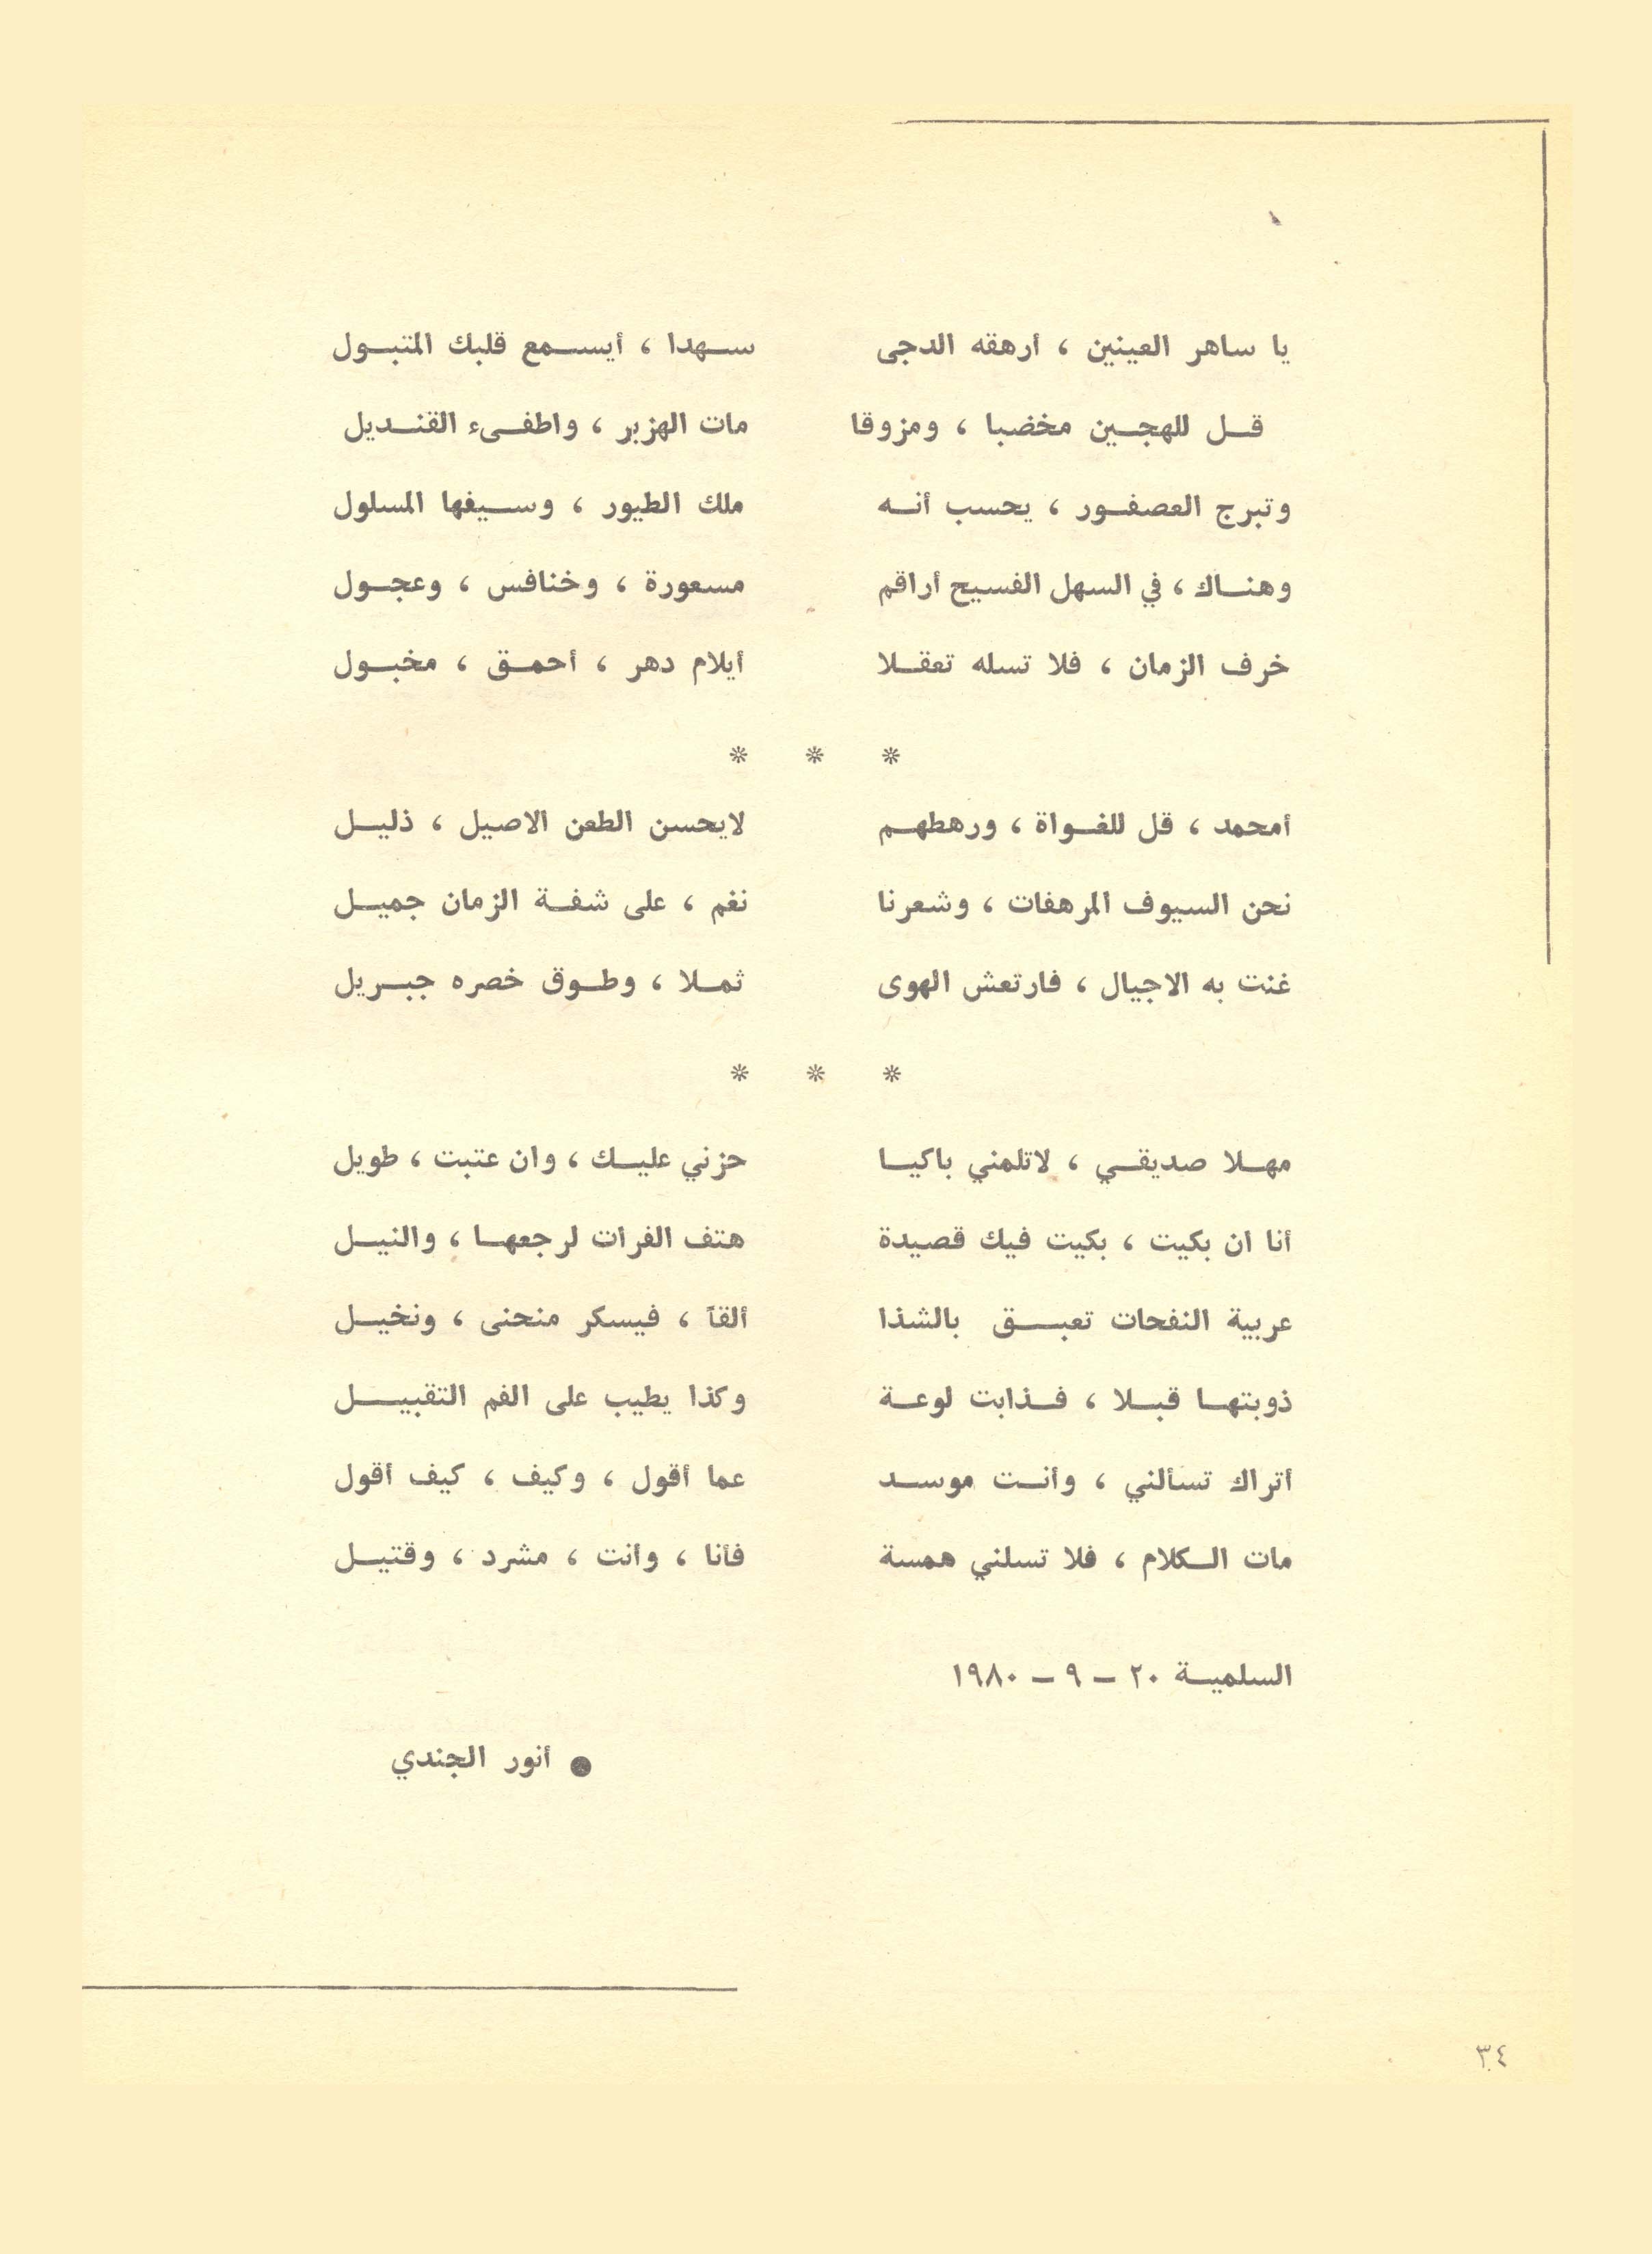 يا ساهر العينين ، أرهقه الدجى سهدا ، أيسمع قلبك المتبول
قل للهجين مخضبا ، ومزوقا مات الهزبر ، واطفىء القنديل
وتبرج العصفور ، يحسب أنه ملك الطيور ، وسيفها المسلول
وهناك ، في السهل الفسيح أراقم مسعورة ، وخنافس ، وعجول
خرف الزمان ، فلا تسله تعقلا أيلام دهر ، أحمق ، مخبول
* * *
أمحمد ، قل للغواة ، ورهطهم لايحسن الطعن الاصيل ، ذليل
نحن السيوف المرهفات ، وشعرنا نغم ، على شفة الزمان جميل
غنت به الاجيال ، فارتعش الهوى ثملا ، وطوق خصره جبريل
* * *
مهلا صديقي ، لاتلمني باكيا حزني عليك ، وان عتبت ، طويل
أنا ان بكيت ، بكيت فيك قصيدة هتف الفرات لرجعها ، والنيل
عربية النفحات تعبق بالشذا ألقاً ، فيسكر منحنى ، ونخيل
ذوبتها قبلا ، فذابت لوعة وكذا يطيب على الفم التقبيل
أتراك تسألني ، وأنت موسد عما أقول ، وكيف ، كيف أقول
مات الكلام ، فلا تسلني همسة فأنا ، وأنت ، مشرد ، وقتيل
السلمية ٢٠ – ٩ – ١٩٨٠
● أنور الجندي
٣٤